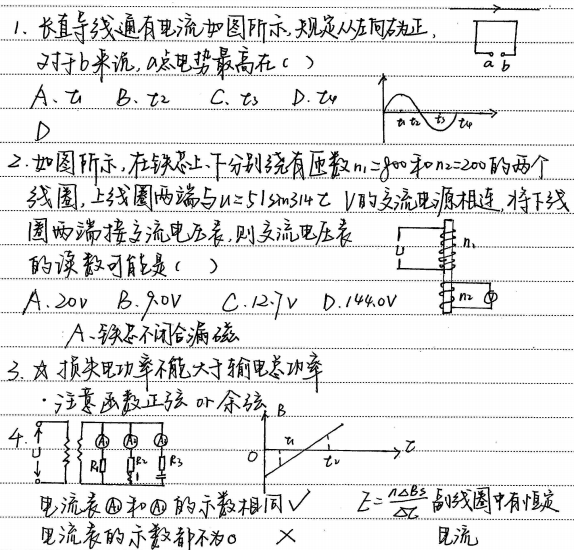 1. 长直导线通有电流如图所示,规定从左向右为正,
对于b来说,a点电势最高在( )
a b
A. t1 B. t2 C. t3 D. t4
t1 t2 t3 t4
D
2. 如图所示,在铁芯上、下分别绕有匝数n1=800和n2=200的两个
线圈,上线圈两端与u=51sin314t V的交流电源相连,将下线
圈两端接交流电压表,则交流电压表
的读数可能是( )
U n1
A. 2.0V B. 9.0V C. 12.7V D. 144.0V
n2 V
A、铁芯不闭合漏磁
3. ☆ 损失电功率不能大于输电总功率
·注意函数正弦 or 余弦
4. U A1 A2 A3 R1 R2 R3
B 0 t1 t2 t
电流表A1和A2的示数相同 ✓
E=nΔBS/Δt 副线圈中有恒定
电流表的示数都不为0 ×
电流